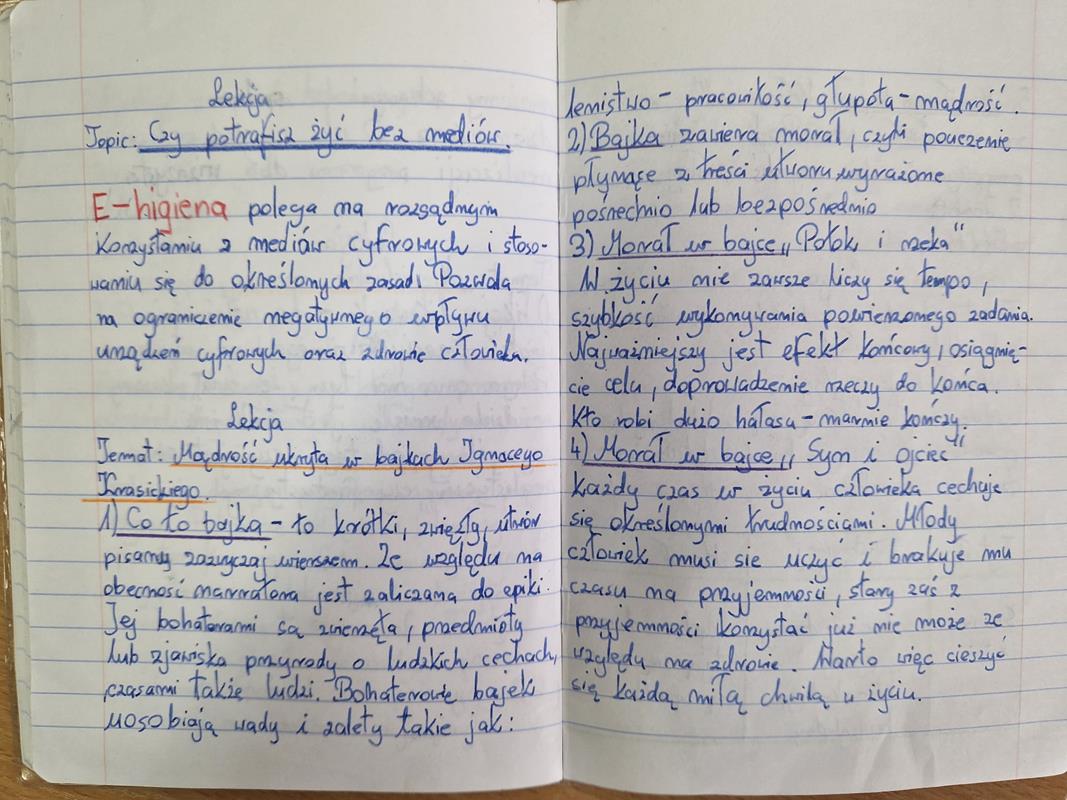 Lekcja
Topic: Czy potrafisz żyć bez mediów.
E-higiena polega na rozsądnym
korzystaniu z mediów cyfrowych i stoso-
waniu się do określonych zasad. Pozwala
na ograniczenie negatywnego wpływu
urządzeń cyfrowych oraz zdrowie człowieka.
Lekcja
Temat: Mądrość ukryta w bajkach Ignacego
Krasickiego.
1) Co to bajka - to krótki, zwięzły, utwór
pisany zazwyczaj wierszem. Ze względu na
obecność narratora jest zaliczana do epiki.
Jej bohaterami są zwierzęta, przedmioty
lub zjawiska przyrody o ludzkich cechach,
czasami także ludzi. Bohaterowie bajek
uosobiają wady i zalety takie jak:
lenistwo - pracowitość, głupota - mądrość.
2) Bajka zawiera morał, czyli pouczenie
płynące z treści utworu, wyrażone
pośrednio lub bezpośrednio
3) Morał w bajce „Potok i rzeka"
W życiu nie zawsze liczy się tempo,
szybkość wykonywania powierzonego zadania.
Najważniejszy jest efekt końcowy, osiągnię-
cie celu, doprowadzenie rzeczy do końca.
Kto robi dużo hałasu - marnie kończy.
4) Morał w bajce „Syn i ojciec"
Każdy czas w życiu człowieka cechuje
się określonymi trudnościami. Młody
człowiek musi sie uczyć i brakuje mu
czasu na przyjemności, stary zaś z
przyjemności korzystać już nie może ze
względu na zdrowie. Warto więc cieszyć
się każdą miłą chwilą w życiu.